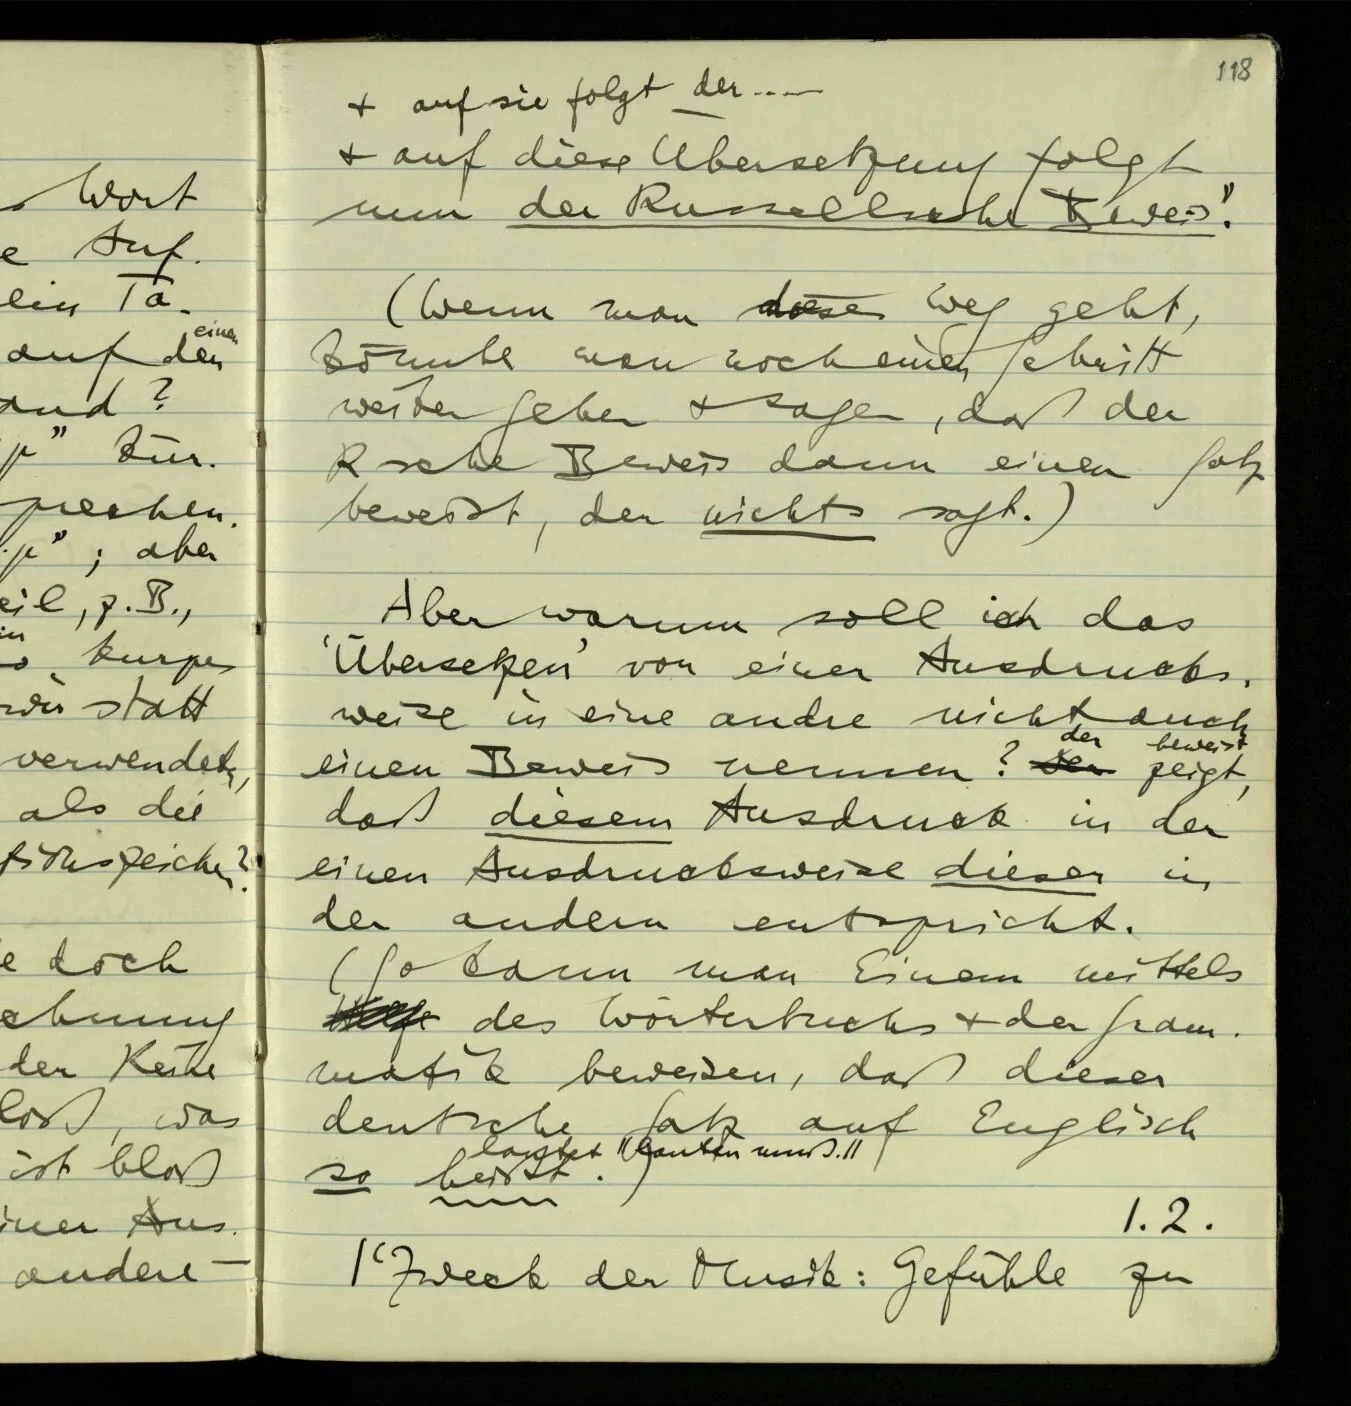 Wort
e Auf-
ein Ta-
einen
auf den
and?
p" kür-
prechen.
p"; aber
eil, z.B.,
in
so kurzes
wir statt
verwendete,
als die
tionszeichen?
e doch
chnung
der Keine
loß, was
ist bloß
iner Aus-
andere —
118
+ auf sie folgt der ....—
+ auf diese Übersetzung folgt
nun der Russellsche Beweis".
(Wenn man diesen Weg geht,
könnte man noch einen Schritt
weiter gehen + sagen, daß der
R sche Beweis dann einen Satz
beweist, der nichts sagt.)
Aber warum soll ich das
'Übersetzen' von einer Ausdrucks-
weise in eine andre nicht auch
der beweist
einen Beweis nennen? der zeigt,
daß diesem Ausdruck in der
einen Ausdrucksweise dieser in
der andern entspricht.
(So kann man Einem mittels
des Wörterbuchs + der Gram-
matik beweisen, daß dieser
deutsche Satz auf Englisch
lautet "lauten muß."
so heißt.)
1.2.
|'Zweck der Musik: Gefühle zu